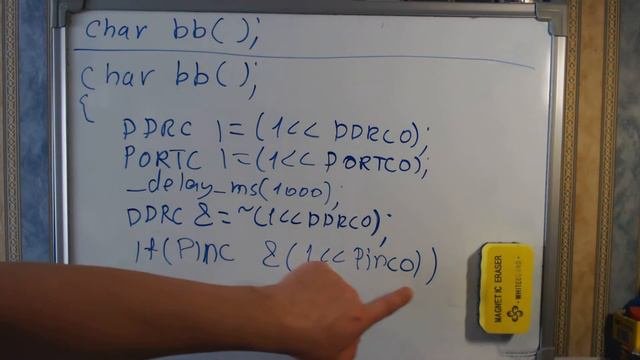 char bb();
char bb();
{
DDRC |=(1<< DDRC0);
PORTC |=(1<< PORTC0);
_delay_ms(1000);
DDRC &=~(1<<DDRC0);
if(PINC &(1<<Pinc0))
MAGNETIC ERASER
WHITEBOARD